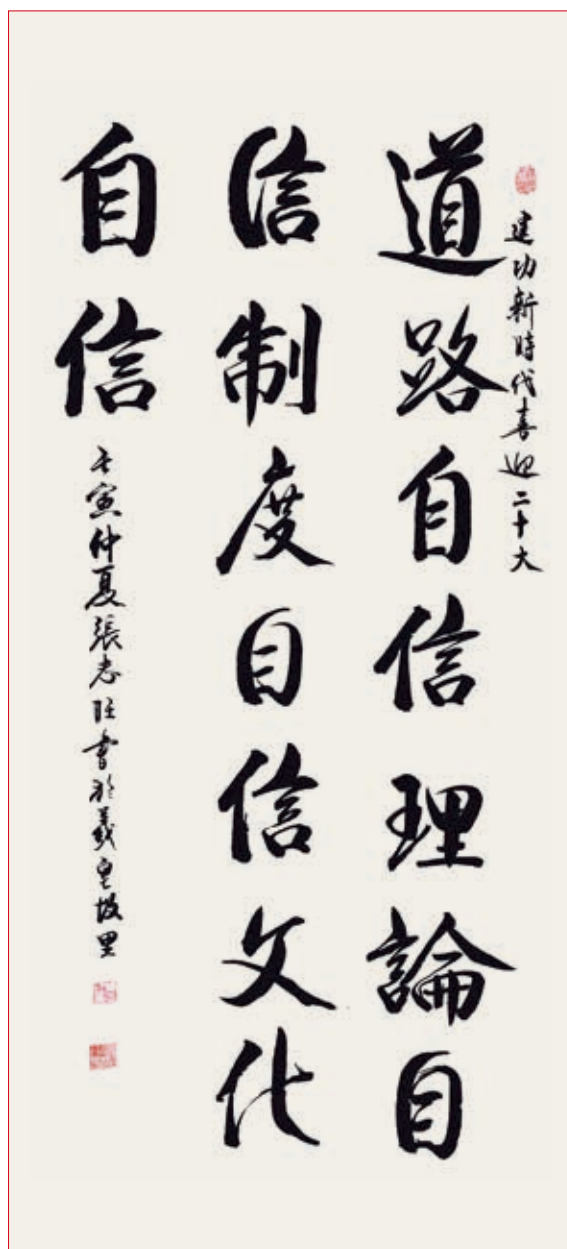 建功新時代喜迎二十大
道路自信理論自
信制度自信文化
自信
壬寅仲夏張志旺書於羲皇故里